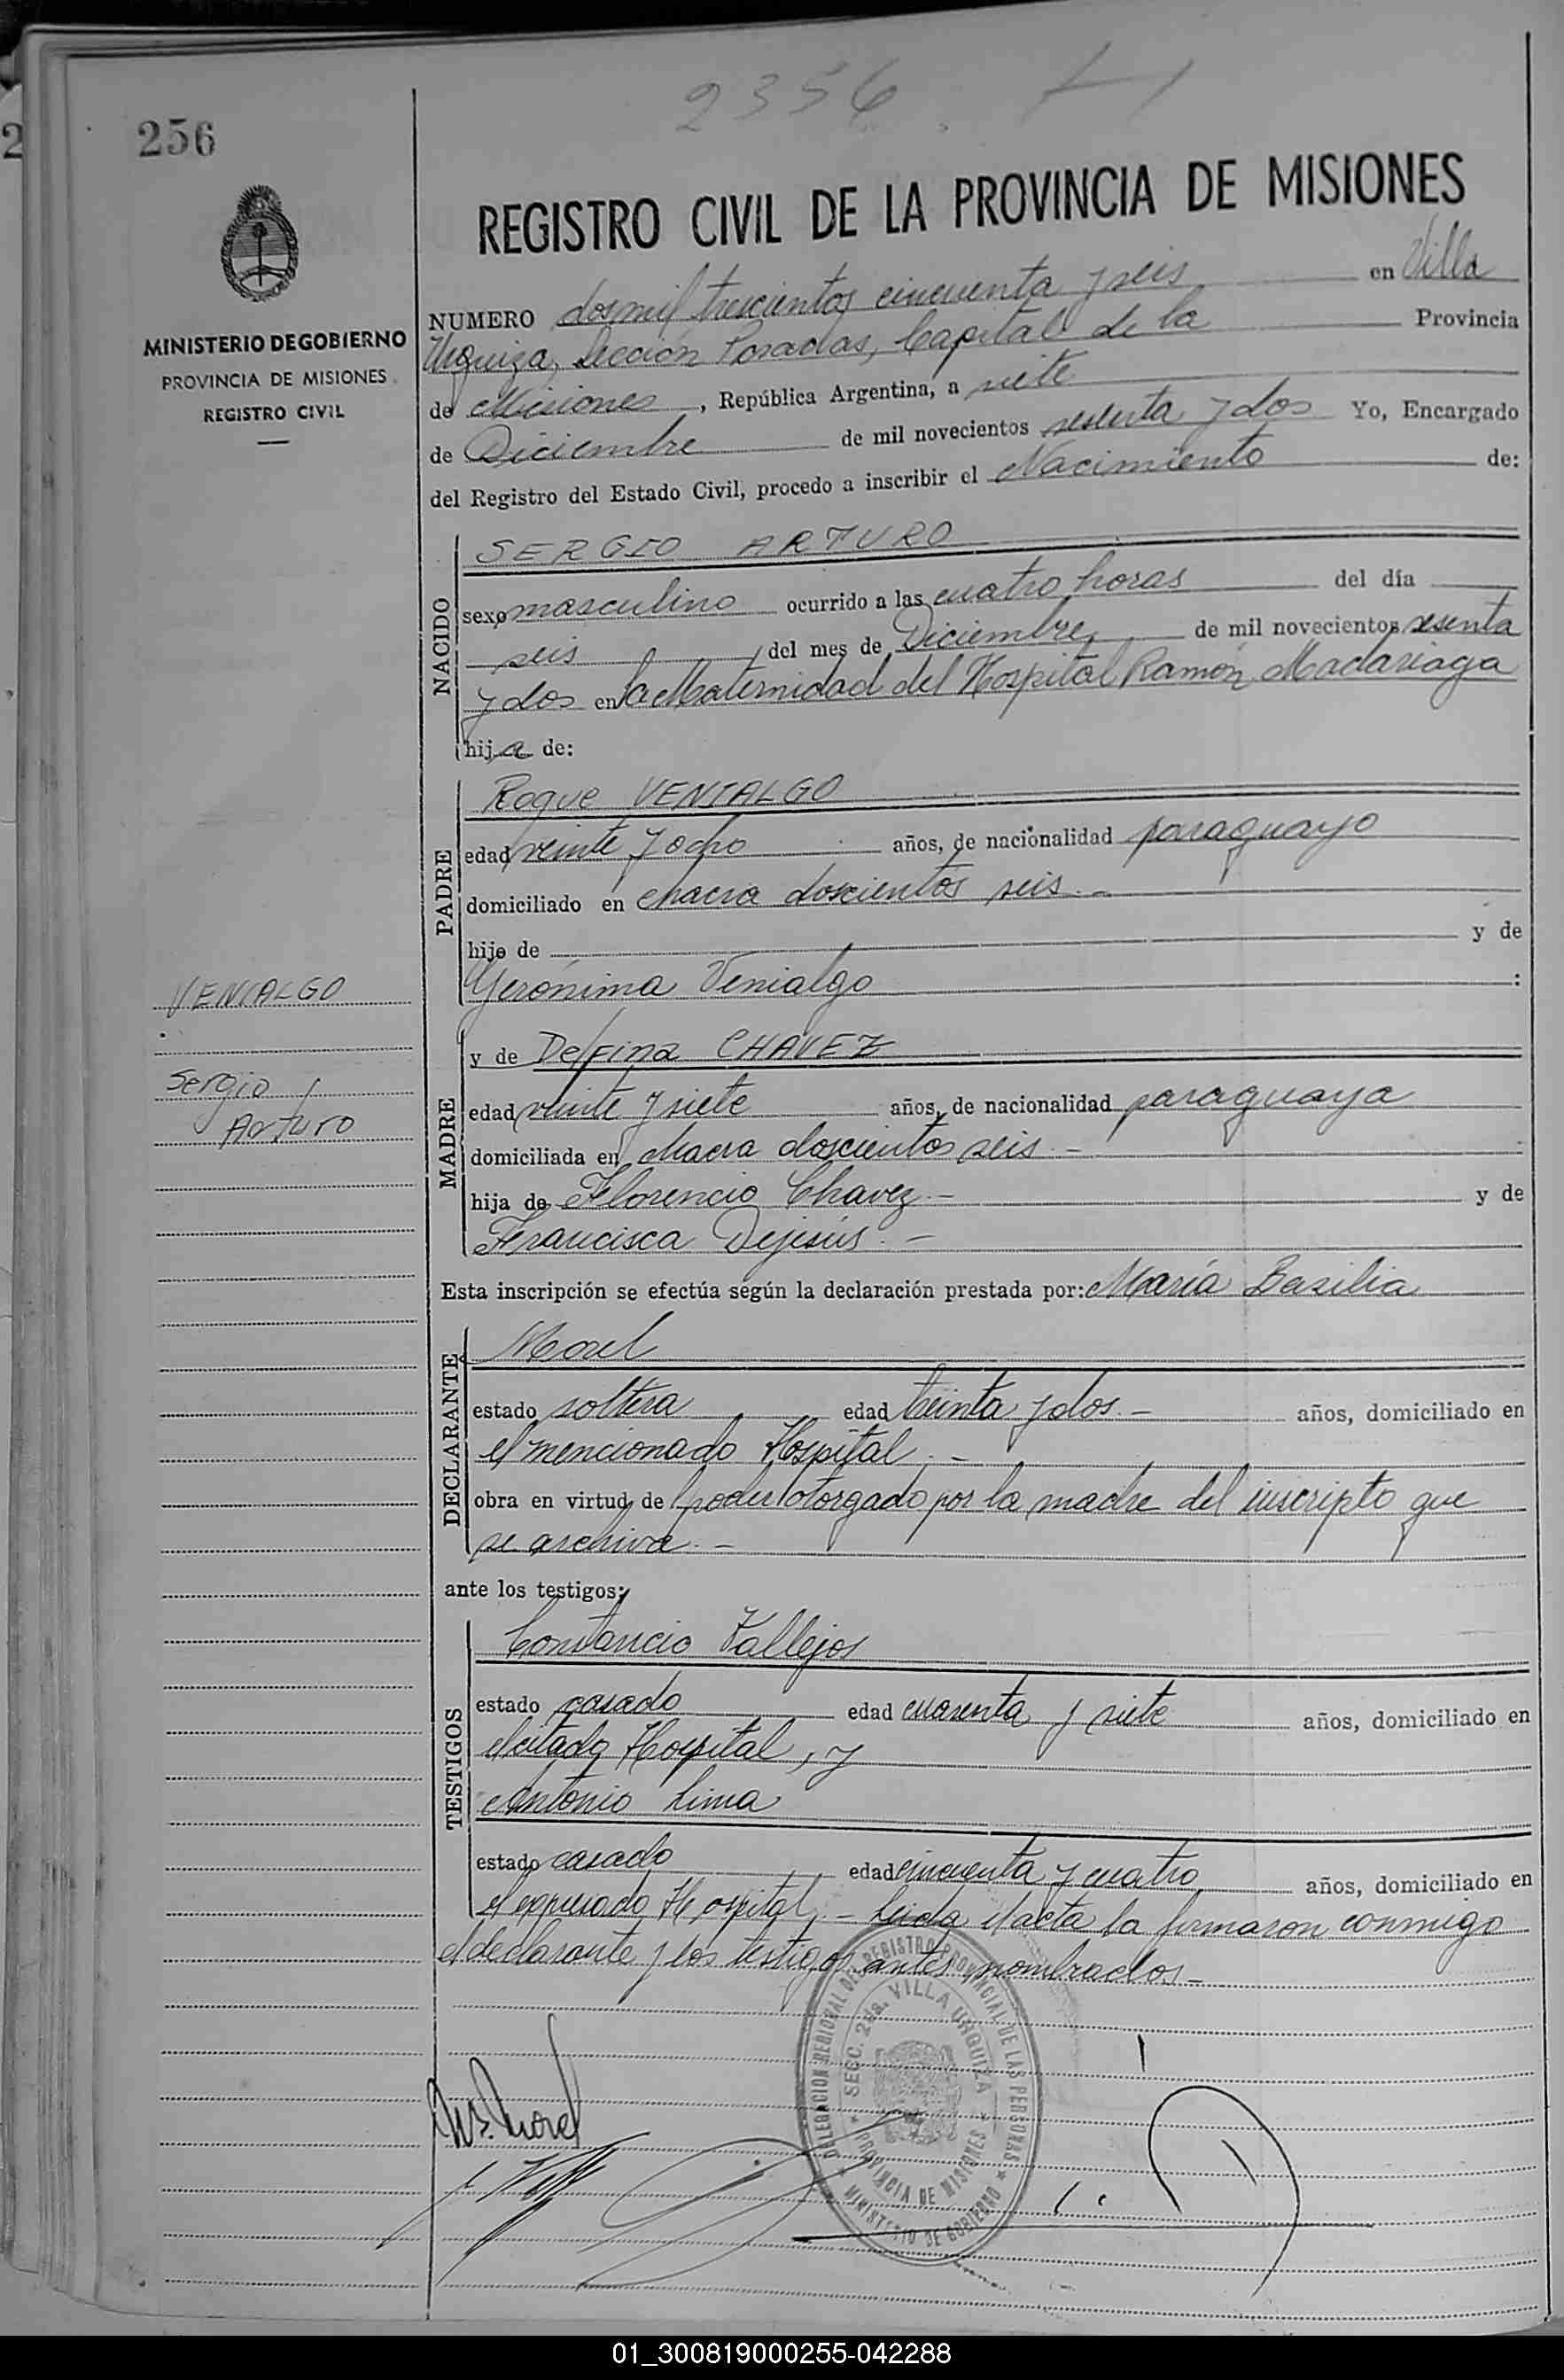 2356
256
REGISTRO CIVIL DE LA PROVINCIA DE MISIONES
MINISTERIO DE GOBIERNO
PROVINCIA DE MISIONES
REGISTRO CIVIL
NUMERO dos mil trescientos cincuenta y seis en Villa
Urquiza, Sección Posadas, Capital de la Provincia
de Misiones, República Argentina, a siete
de Diciembre de mil novecientos sesenta y dos Yo, Encargado
del Registro del Estado Civil, procedo a inscribir el Nacimiento de:
NACIDO
SERGIO ARTURO
sexo masculino ocurrido a las cuatro horas del día
seis del mes de Diciembre, de mil novecientos sesenta
y dos en la Maternidad del Hospital Ramón Madariaga
hija de:
PADRE
Roque VENIALGO
edad veinte y ocho años, de nacionalidad paraguayo
domiciliado en chacra doscientos seis.-
hijo de y de
Gerónima Venialgo :
VENIALGO
Sergio
Arturo
MADRE
y de Delfina CHAVEZ
edad veinte y siete años, de nacionalidad paraguaya
domiciliada en chacra doscientos seis.-
hija de Florencio Chavez.- y de
Francisca Dejesús.-
Esta inscripción se efectúa según la declaración prestada por: María Basilia
DECLARANTE
Morel
estado soltera edad treinta y dos.- años, domiciliado en
el mencionado Hospital.-
obra en virtud de poder otorgado por la madre del inscripto que
se archiva.-
ante los testigos:
TESTIGOS
Constancio Vallejos
estado casado edad cuarenta y siete años, domiciliado en
el citado Hospital, y
Antonio Lima
estado casado edad cincuenta y cuatro años, domiciliado en
el expresado Hospital.- Leida el acta la firmaron conmigo
el declarante y los testigos antes nombrados-
DELEGACION REGIONAL DEL REGISTRO PROVINCIAL DE LAS PERSONAS
SECC. 2da. VILLA URQUIZA
PROVINCIA DE MISIONES
MINISTERIO DE GOBIERNO
M.B. Morel
01_300819000255-042288